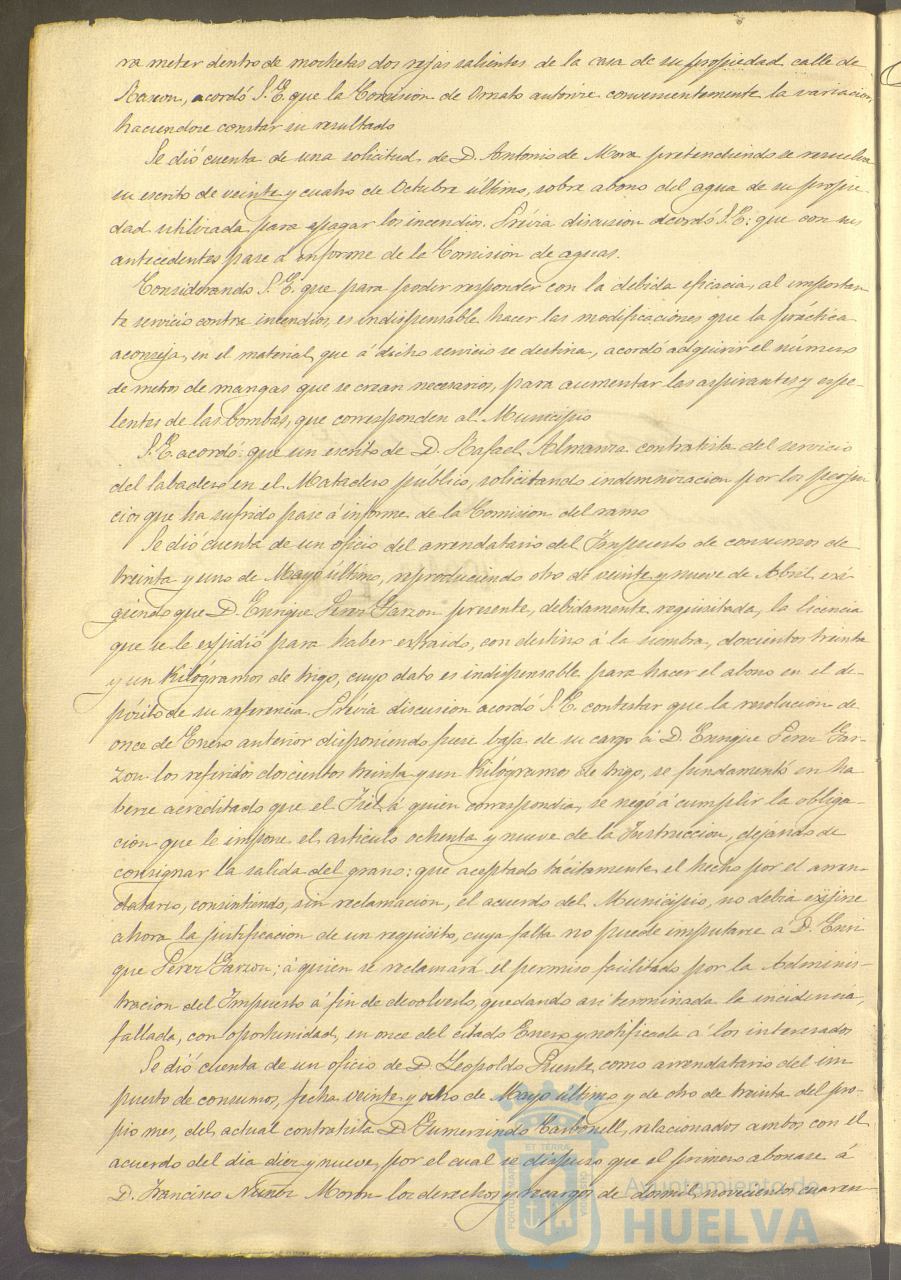 ra meter dentro de mochetas dos rejas salientes de la casa de su propiedad calle de
Rascon, acordó S.E. que la Comision de Ornato autorize convenientemente la variacion,
haciendose constar su resultado
Se dió cuenta de una solicitud de D. Antonio de Mora pretendiendo se resuelva
su escrito de veinte y cuatro de Octubre último, sobre abono del agua de su propie-
dad utilizada para apagar los incendios. Prévia discusion acordó S.E: que con sus
antecedentes pase á informe de la Comision de aguas.
Considerando S.E. que para poder responder con la debida eficacia, al importan
te servicio contra incendios, es indispensable hacer las modificaciones que la práctica
aconseja, en el material, que á dicho servicio se destina, acordó adquirir el número
de metros de mangas que se crean necesarios, para aumentar las aspirantes y espe-
lentes de las bombas, que corresponden al Municipio
S.E. acordó: que un escrito de D. Rafael Almanza contratista del servicio
del labadero en el Matadero público, solicitando indemnizacion por los perjui
cios que ha sufrido pase á informe de la Comision del ramo
Se dió cuenta de un oficio del arrendatario del Impuesto de consumos de
treinta y uno de Mayo último, reproduciendo otro de veinte y nueve de Abril, exi-
giendo que D. Enrique Perez Garzon presente, debidamente requisitada, la licencia
que se le espidió para haber extraido, con destino á la siembra, doscientos treinta
y un Kilógramos de trigo, cuyo dato es indispensable para hacer el abono en el de-
pósito de su referencia. Prévia discusion acordó S.E. contestar que la resolucion de
once de Enero anterior disponiendo fuese baja de su cargo á D. Enrique Perez Gar-
zon los referidos doscientos treinta y un Kilógramos de trigo, se fundamentó en ha
berse acreditado que el Fiel á quien correspondia, se negó á cumplir la obliga-
cion que le impone el artículo ochenta y nueve de la Instruccion, dejando de
consignar la salida del grano; que aceptado tácitamente el hecho por el arren-
datario, consintiendo, sin reclamacion, el acuerdo del Municipio, no debia exijirse
ahora la justificacion de un requisito, cuya falta no puede imputarse á D. Enri-
que Perez Garzon; á quien se reclamará el permiso facilitado por la Adminis-
tracion del Impuesto á fin de devolverlo, quedando asi terminada la incidencia,
fallada, con oportunidad, en once del citado Enero y notificada á los interesados
Se dió cuenta de un oficio de D. Leopoldo Puente, como arrendatario del im
puesto de consumos, fecha veinte y ocho de Mayo último y de otro de treinta del pro-
pio mes, del actual contratista D. Gumersindo Carbonell, relacionados ambos con el
acuerdo del dia diez y nueve, por el cual se dispuso que el primero abonase á
D. Francisco Nuñez Moron los derechos y recargos de dos mil, novecientos cuaren-
Ayuntamiento de
HUELVA